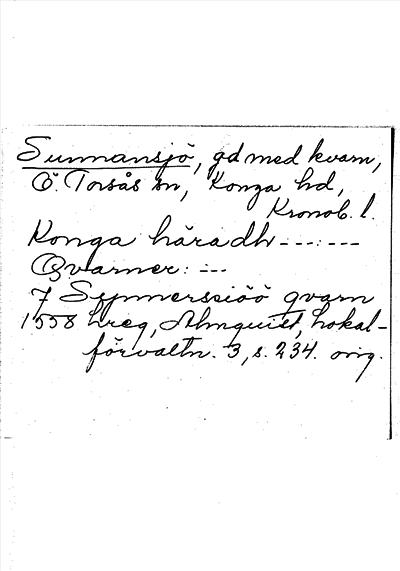 Sunnansjö, gd med kvarn,
Ö Torsås sn, Konga hd,
Kronob. l.
Konga häradh ---:---
Qvarner: ---
7 Synnerssiöö qvarn
1558 Lreg, Almquist, Lokal-
förvaltn. 3, s. 234. orig.